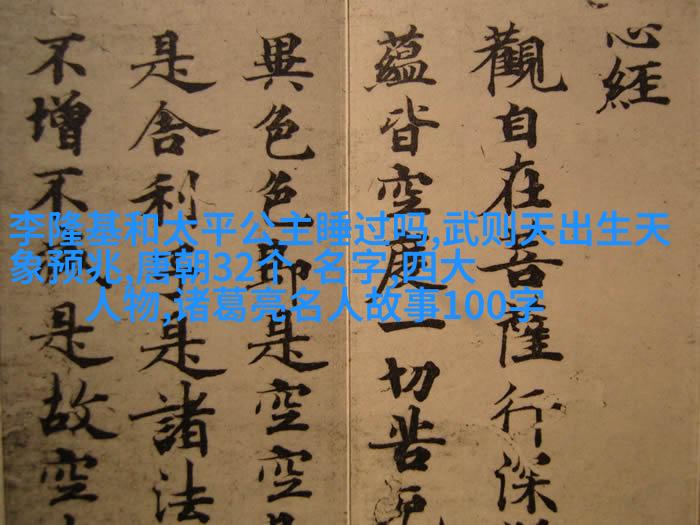 心經
觀自在菩薩行深
蘊皆空度一切苦厄
異色色即是空空
是舍利子是諸法
不增不是故空
李隆基和太平公主睡过吗,武则天出生天
象预兆,唐朝32个 名字,四大
人物,诸葛亮名人故事100字